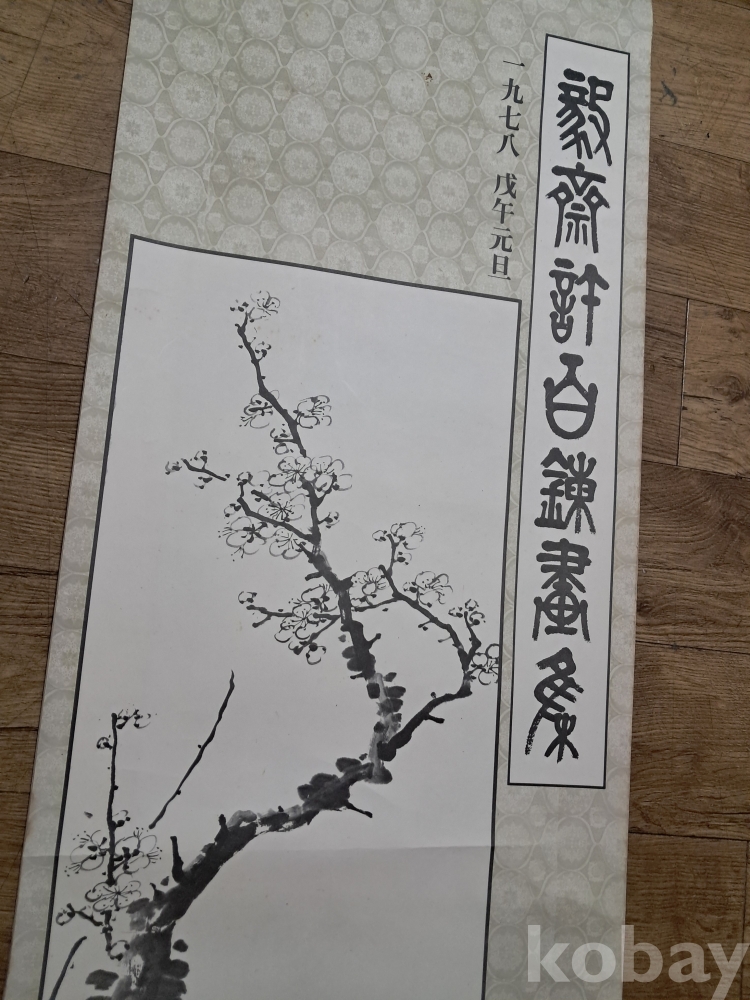 毅齋許百鍊畫集
一九七八 戊午元旦
kobay